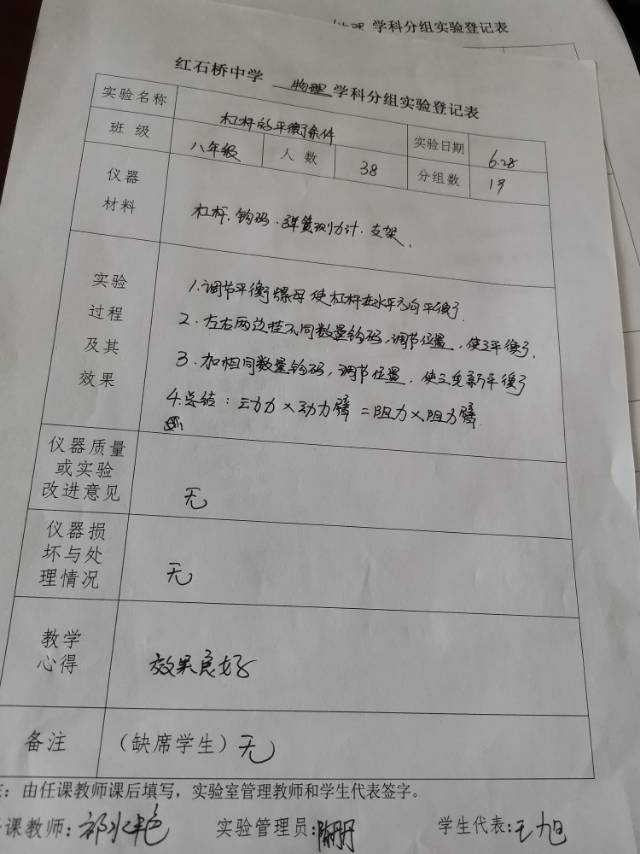 学科分组实验登记表
红石桥中学 物理 学科分组实验登记表
实验名称 杠杆的平衡条件 实验日期 6.28
班级 八年级 人数 38 分组数 19
仪器
材料
杠杆、钩码、弹簧测力计、支架、
实验
过程
及其
效果
1.调节平衡螺母使杠杆在水平方向平衡
2.左右两边挂不同数量钩码,调节位置,使之平衡。
3.加相同数量钩码,调节位置,使之重新平衡
4.总结:动力×动力臂=阻力×阻力臂
仪器质量
或实验
改进意见
无
仪器损
坏与处
理情况
无
教学
心得
效果良好
备注 (缺席学生)无
:由任课教师课后填写,实验室管理教师和学生代表签字。
课教师: 实验管理员: 学生代表:王旭